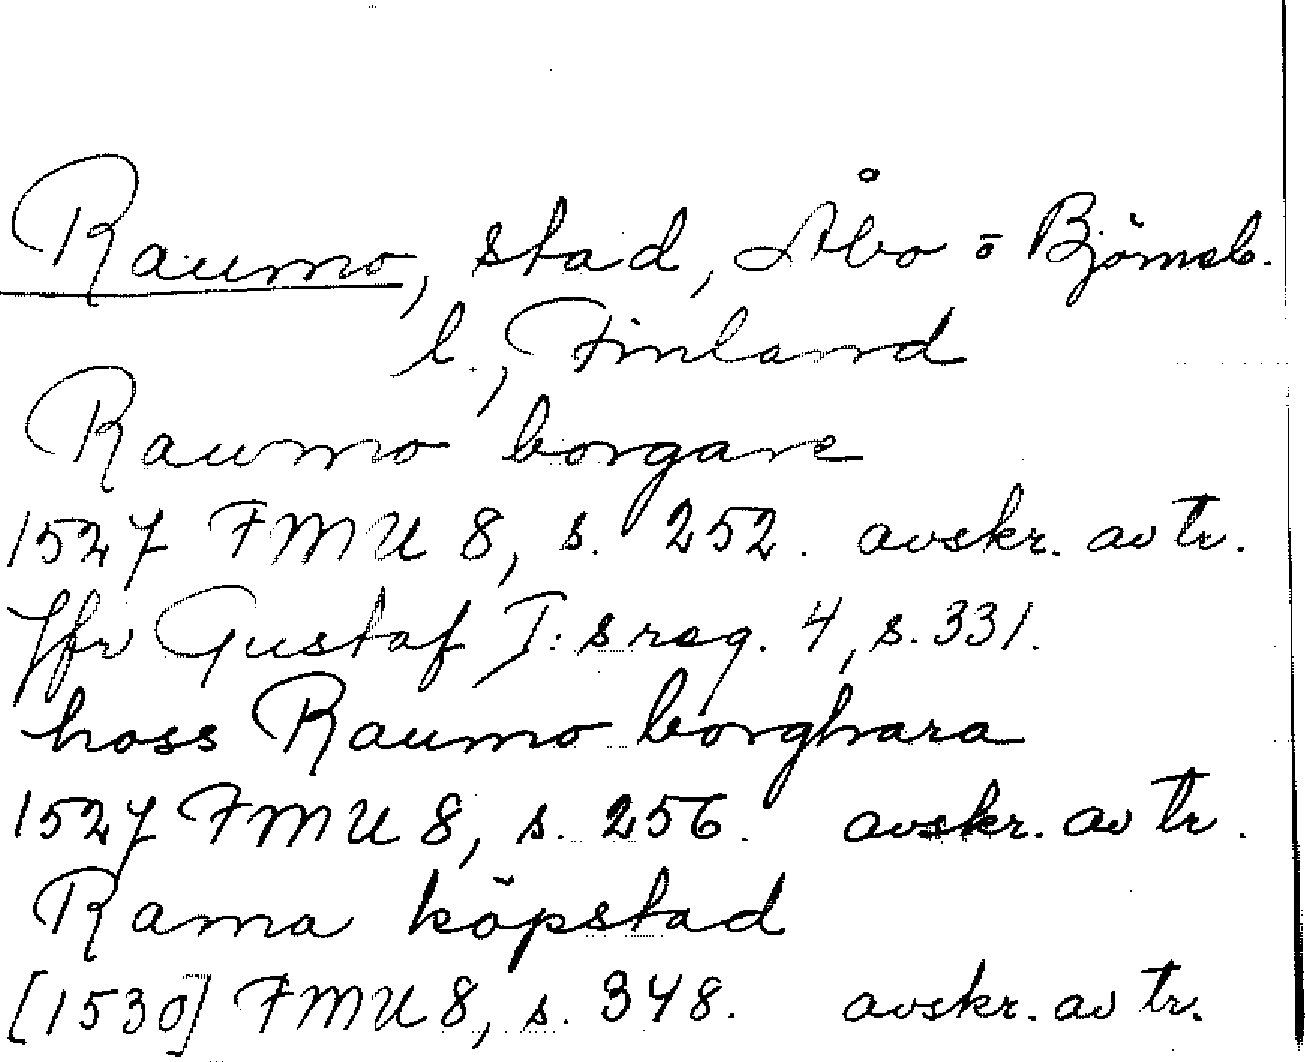 Raumo, stad, Åbo o Björneb.
l., Finland
Raumo borgare
1527 FMU 8, s. 252. avskr. av tr.
Jfr Gustaf I:s reg. 4, s. 331.
hoss Raumo borghara
1527 FMU 8, s. 256. avskr. av tr.
Rama köpstad
[1530] FMU 8, s. 348. avskr. av tr.